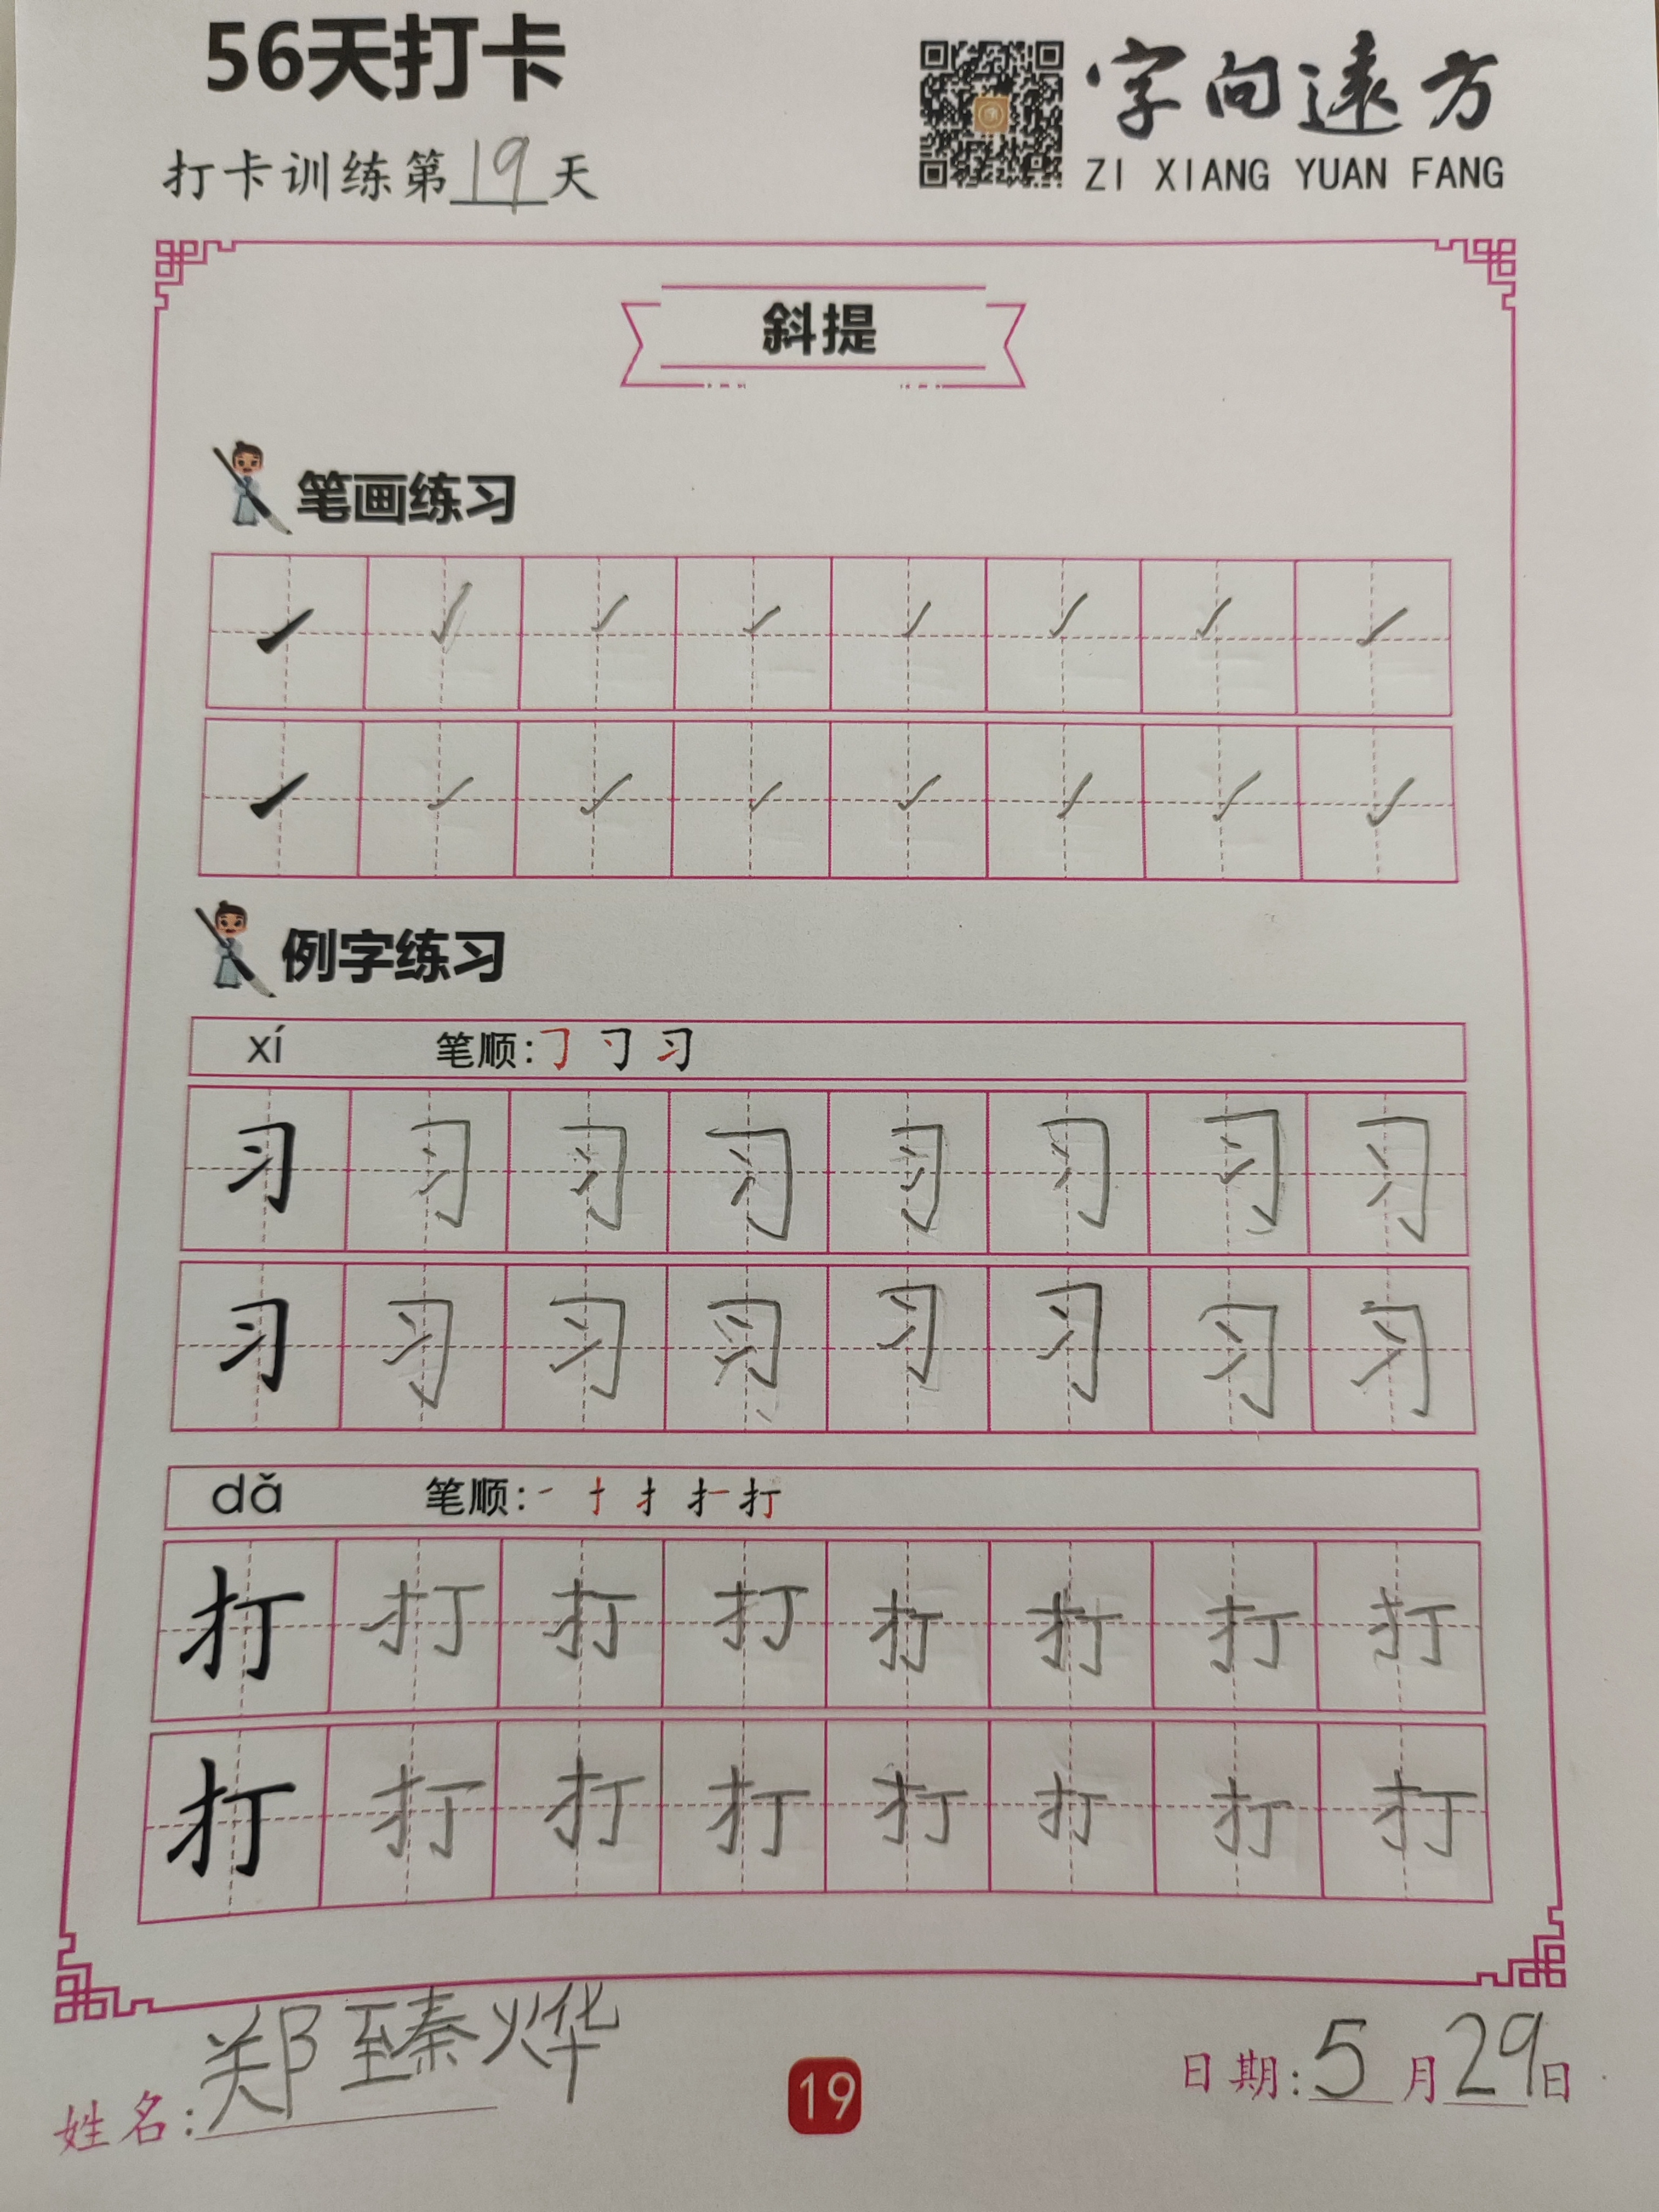 56天打卡
打卡训练第19天
字向远方
ZI XIANG YUAN FANG
斜提
笔画练习
例字练习
xí 笔顺:㇆ 习
习 习 习 习 习 习 习 习
习 习 习 习 习 习 习 习
dǎ 笔顺:一 扌 打
打 打 打 打 打 打 打 打
打 打 打 打 打 打 打 打
姓名:郑臻烨
19
日期:5月29日